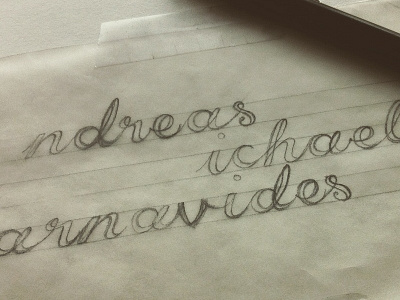 ndreas
ichael
arnavides